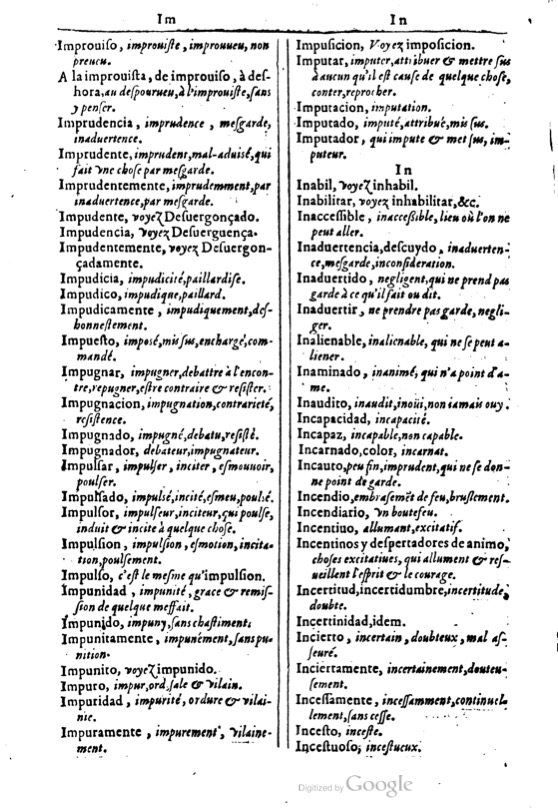 Im
Improuiſo, improuiſte, improuueu, non
preueu.
A la improuiſta, de improuiſo, à deſ-
hora, au deſpourueu, à l'improuiſte, ſans
y penſer.
Imprudencia, imprudence, meſgarde,
inaduertence.
Imprudente, imprudent, mal-aduiſé, qui
fait vne choſe par meſgarde.
Imprudentemente, imprudemment, par
inaduertence, par meſgarde.
Impudente, voyez Deſuergonçado.
Impudencia, voyez Deſuerguença.
Impudentemente, voyez Deſuergon-
çadamente.
Impudicia, impudicité, paillardiſe.
Impudico, impudique, paillard.
Impudicamente, impudiquement, deſ-
honneſtement.
Impueſto, impoſé, mis ſus, enchargé, com-
mandé.
Impugnar, impugner, debattre à l'encon-
tre, repugner, eſtre contraire & reſiſter.
Impugnacion, impugnation, contrarieté,
reſiſtence.
Impugnado, impugné, debatu, reſiſté.
Impugnador, debateur, impugnateur.
Impulſar, impulſer, inciter, eſmouuoir,
poulſer.
Impulſado, impulſé, incité, eſmeu, poulſé.
Impulſor, impulſeur, inciteur, qui poulſe,
induit & incite à quelque choſe.
Impulſion, impulſion, eſmotion, incita-
tion, poulſement.
Impulſo, c'eſt le meſme qu'impulſion.
Impunidad, impunité, grace & remiſ-
ſion de quelque meffait.
Impunido, impuny, ſans chaſtiment.
Impunitamente, impunément, ſans pu-
nition.
Impunito, voyez impunido.
Impuro, impur, ord, ſale & vilain.
Impuridad, impurité, ordure & vilai-
nie.
Impuramente, impurement, vilaine-
ment.
In
Impuſicion, Voyez impoſicion.
Imputar, imputer, attribuer & mettre ſus
à aucun qu'il eſt cauſe de quelque choſe,
conter, reprocher.
Imputacion, imputation.
Imputado, imputé, attribué, mis ſus.
Imputador, qui impute & met ſus, im-
puteur.
In
Inabil, voyez inhabil.
Inabilitar, voyez inhabilitar, &c.
Inacceſſible, inacceſſible, lieu où l'on ne
peut aller.
Inaduertencia, deſcuydo, inaduerten-
ce, meſgarde, inconſideration.
Inaduertido, negligent, qui ne prend pas
garde à ce qu'il fait ou dit.
Inaduertir, ne prendre pas garde, negli-
ger.
Inalienable, inalienable, qui ne ſe peut a-
liener.
Inaminado, inanimé, qui n'a point d'a-
me.
Inaudito, inaudit, inoüi, non iamais ouy.
Incapacidad, incapacité.
Incapaz, incapable, non capable.
Incarnado, color, incarnat.
Incauto, peu fin, imprudent, qui ne ſe don-
ne point de garde.
Incendio, embraſemẽt de feu, bruſlement.
Incendiario, vn boutefeu.
Incentiuo, allumant, excitatif.
Incentinos y deſpertadores de animo,
choſes excitatiues, qui allument & reſ-
ueillent l'eſprit & le courage.
Incertitud, incertidumbre, incertitude,
doubte.
Incertinidad, idem.
Incierto, incertain, doubteux, mal aſ-
ſeuré.
Inciertamente, incertainement, douteu-
ſement.
Inceſſamente, inceſſamment, continuel-
lement, ſans ceſſe.
Inceſto, inceſte.
Inceſtuoſo, inceſtueux.
Digitized by Google